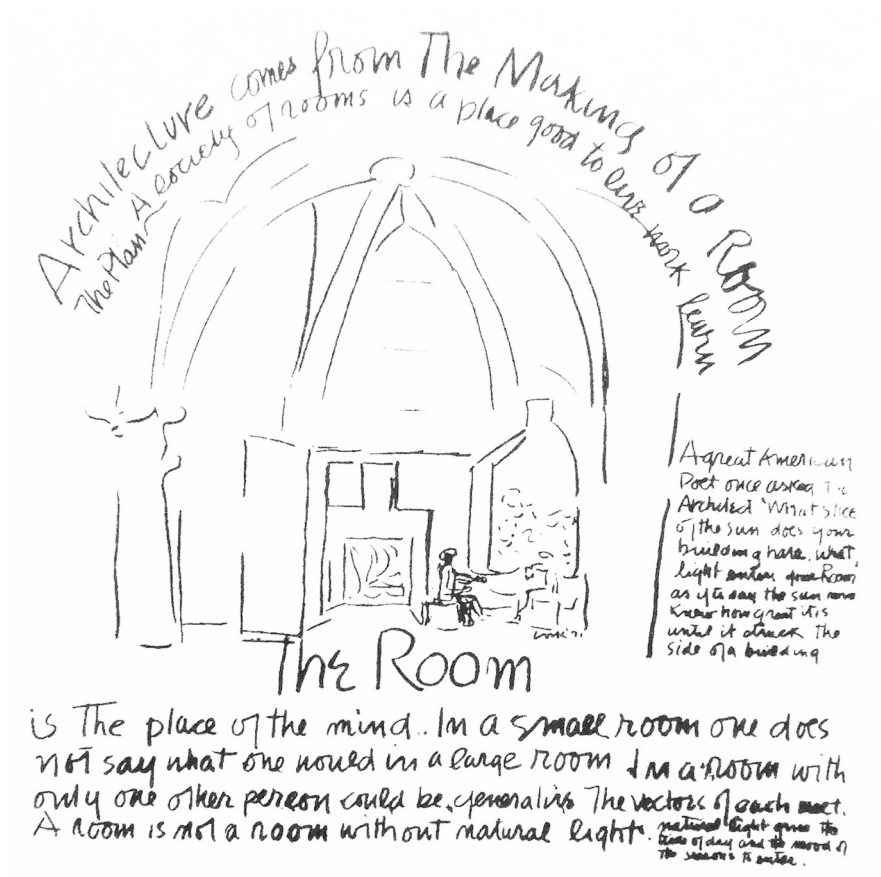 Architecture comes from The Making of a Room
The Plan A society of rooms is a place good to live work learn
A great American
Poet once asked The
Architect 'What slice
of the sun does your
building have. what
light enters your Room
as if to say the sun never
knew how great it is
until it struck the
side of a building
The Room
is The place of the mind.. In a small room one does
not say what one would in a large room In a room with
only one other person could be generative The vectors of each meet.
A room is not a room without natural light.
natural light gives the
time of day and the mood of
the seasons to enter.